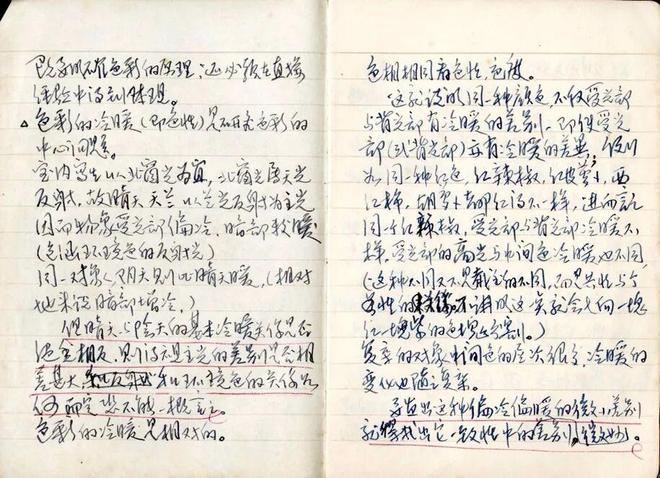 既予以不在色彩的原理,还必须在直接
经验中得到体现。
△色彩的冷暖(即色性)是研究色彩的
中心问题。
室内写生以北窗光为宜,北窗光属天光
反射,故晴天天兰,以兰光反射为主光
因而物象受光部偏冷,暗部较暖
(包涵环境色的反射光)
同一对象,阴天则比晴天暖,(相对
地来说暗部增冷。)
但晴天与阴天的基本冷暖关系是否
完全相反,则得看主光的差别是否相
差甚大,和环境色的关系如
何而定,不能一概言之。
色彩的冷暖是相对的。
色相相同看色性,色度。
这就说明同一种颜色不仅受光部
与背光部有冷暖的差别,即使受光
部(或背光部)亦有冷暖的差异,假以
如同一种红色,红辣椒,红萝卜,西
红柿,胡萝卜都红得不一样,进而言
同一红辣椒,受光部与背光部冷暖不
样,受光部的高光与中间色冷暖也不同
(这种不同又不是截然的不同,而是共性与个
性的关系。
红一块
复杂的对象中间色的层次很多,冷暖的
变化也随之复杂。
寻找出这种偏冷偏暖的微小差别
就得找出它一致性中的差别,微妙。